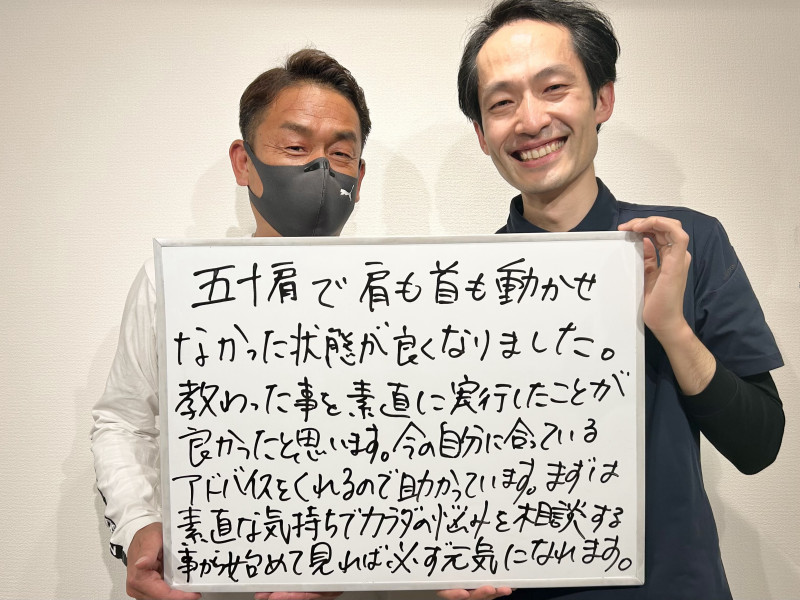 五十肩で肩も首も動かせ
なかった状態が良くなりました。
教わった事を素直に実行したことが
良かったと思います。今の自分に合っている
アドバイスをくれるので助かっています。まずは
素直な気持ちでカラダの悩みを相談する
事から始めて見れば必ず元気になれます。